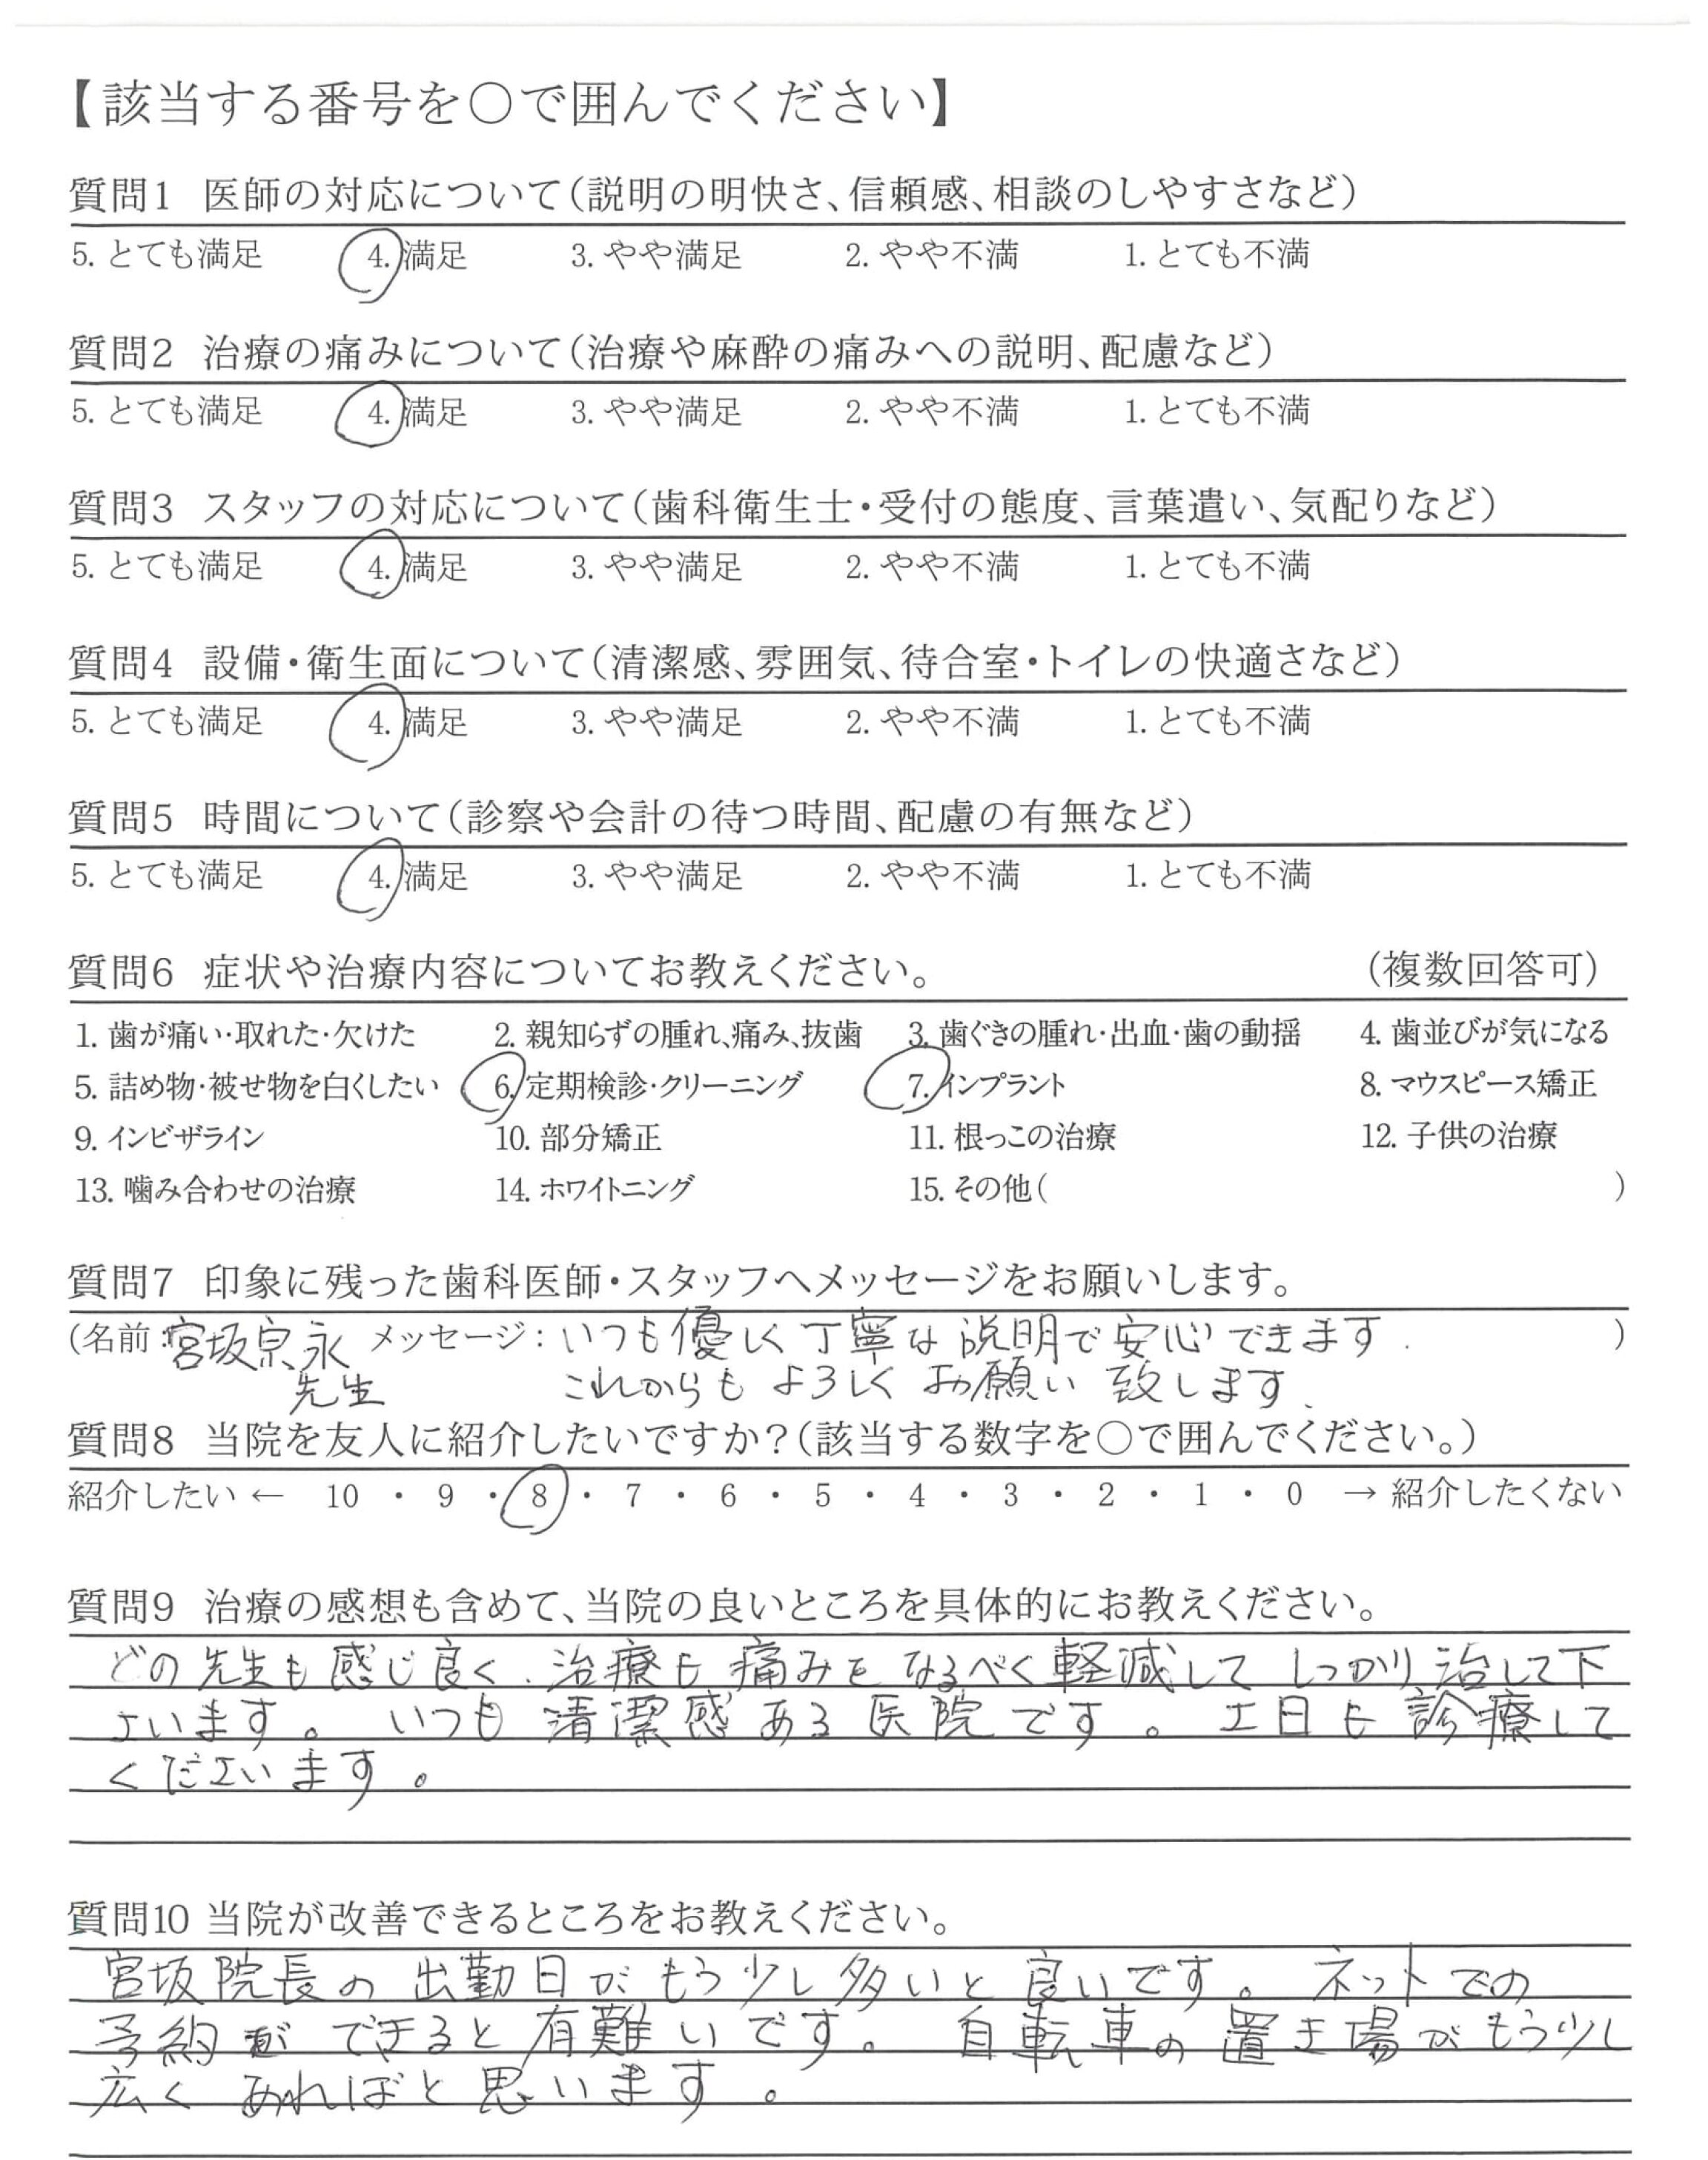 【該当する番号を〇で囲んでください】
質問1 医師の対応について（説明の明快さ、信頼感、相談のしやすさなど）
5. とても満足 4. 満足 3. やや満足 2. やや不満 1. とても不満
質問2 治療の痛みについて（治療や麻酔の痛みへの説明、配慮など）
5. とても満足 4. 満足 3. やや満足 2. やや不満 1. とても不満
質問3 スタッフの対応について（歯科衛生士・受付の態度、言葉遣い、気配りなど）
5. とても満足 4. 満足 3. やや満足 2. やや不満 1. とても不満
質問4 設備・衛生面について（清潔感、雰囲気、待合室・トイレの快適さなど）
5. とても満足 4. 満足 3. やや満足 2. やや不満 1. とても不満
質問5 時間について（診察や会計の待つ時間、配慮の有無など）
5. とても満足 4. 満足 3. やや満足 2. やや不満 1. とても不満
質問6 症状や治療内容についてお教えください。 （複数回答可）
1. 歯が痛い・取れた・欠けた 2. 親知らずの腫れ、痛み、抜歯 3. 歯ぐきの腫れ・出血・歯の動揺 4. 歯並びが気になる
5. 詰め物・被せ物を白くしたい 6. 定期検診・クリーニング 7. インプラント 8. マウスピース矯正
9. インビザライン 10. 部分矯正 11. 根っこの治療 12. 子供の治療
13. 噛み合わせの治療 14. ホワイトニング 15. その他（ ）
質問7 印象に残った歯科医師・スタッフへメッセージをお願いします。
（名前：宮坂宗永 メッセージ：いつも優しく丁寧な説明で安心できます. ）
先生 これからもよろしくお願い致します.
質問8 当院を友人に紹介したいですか？（該当する数字を〇で囲んでください。）
紹介したい ← 10 ・ 9 ・ 8 ・ 7 ・ 6 ・ 5 ・ 4 ・ 3 ・ 2 ・ 1 ・ 0 → 紹介したくない
質問9 治療の感想も含めて、当院の良いところを具体的にお教えください。
どの先生も感じ良く、治療も痛みをなるべく軽減してしっかり治して下
さいます。いつも清潔感ある医院です。土日も診療して
くださいます。
質問10 当院が改善できるところをお教えください。
宮坂院長の出勤日がもう少し多いと良いです。ネットでの
予約ができると有難いです。自転車の置き場がもう少し
広くあればと思います。